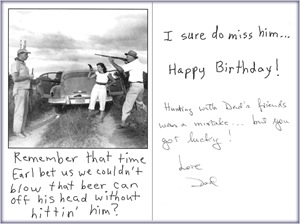 Remember that time
Earl bet us we couldn't
blow that beer can
off his head without
hittin' him?
I sure do miss him...
Happy Birthday!
Hunting with Dad's friends
was a mistake... but you
got lucky!
Love